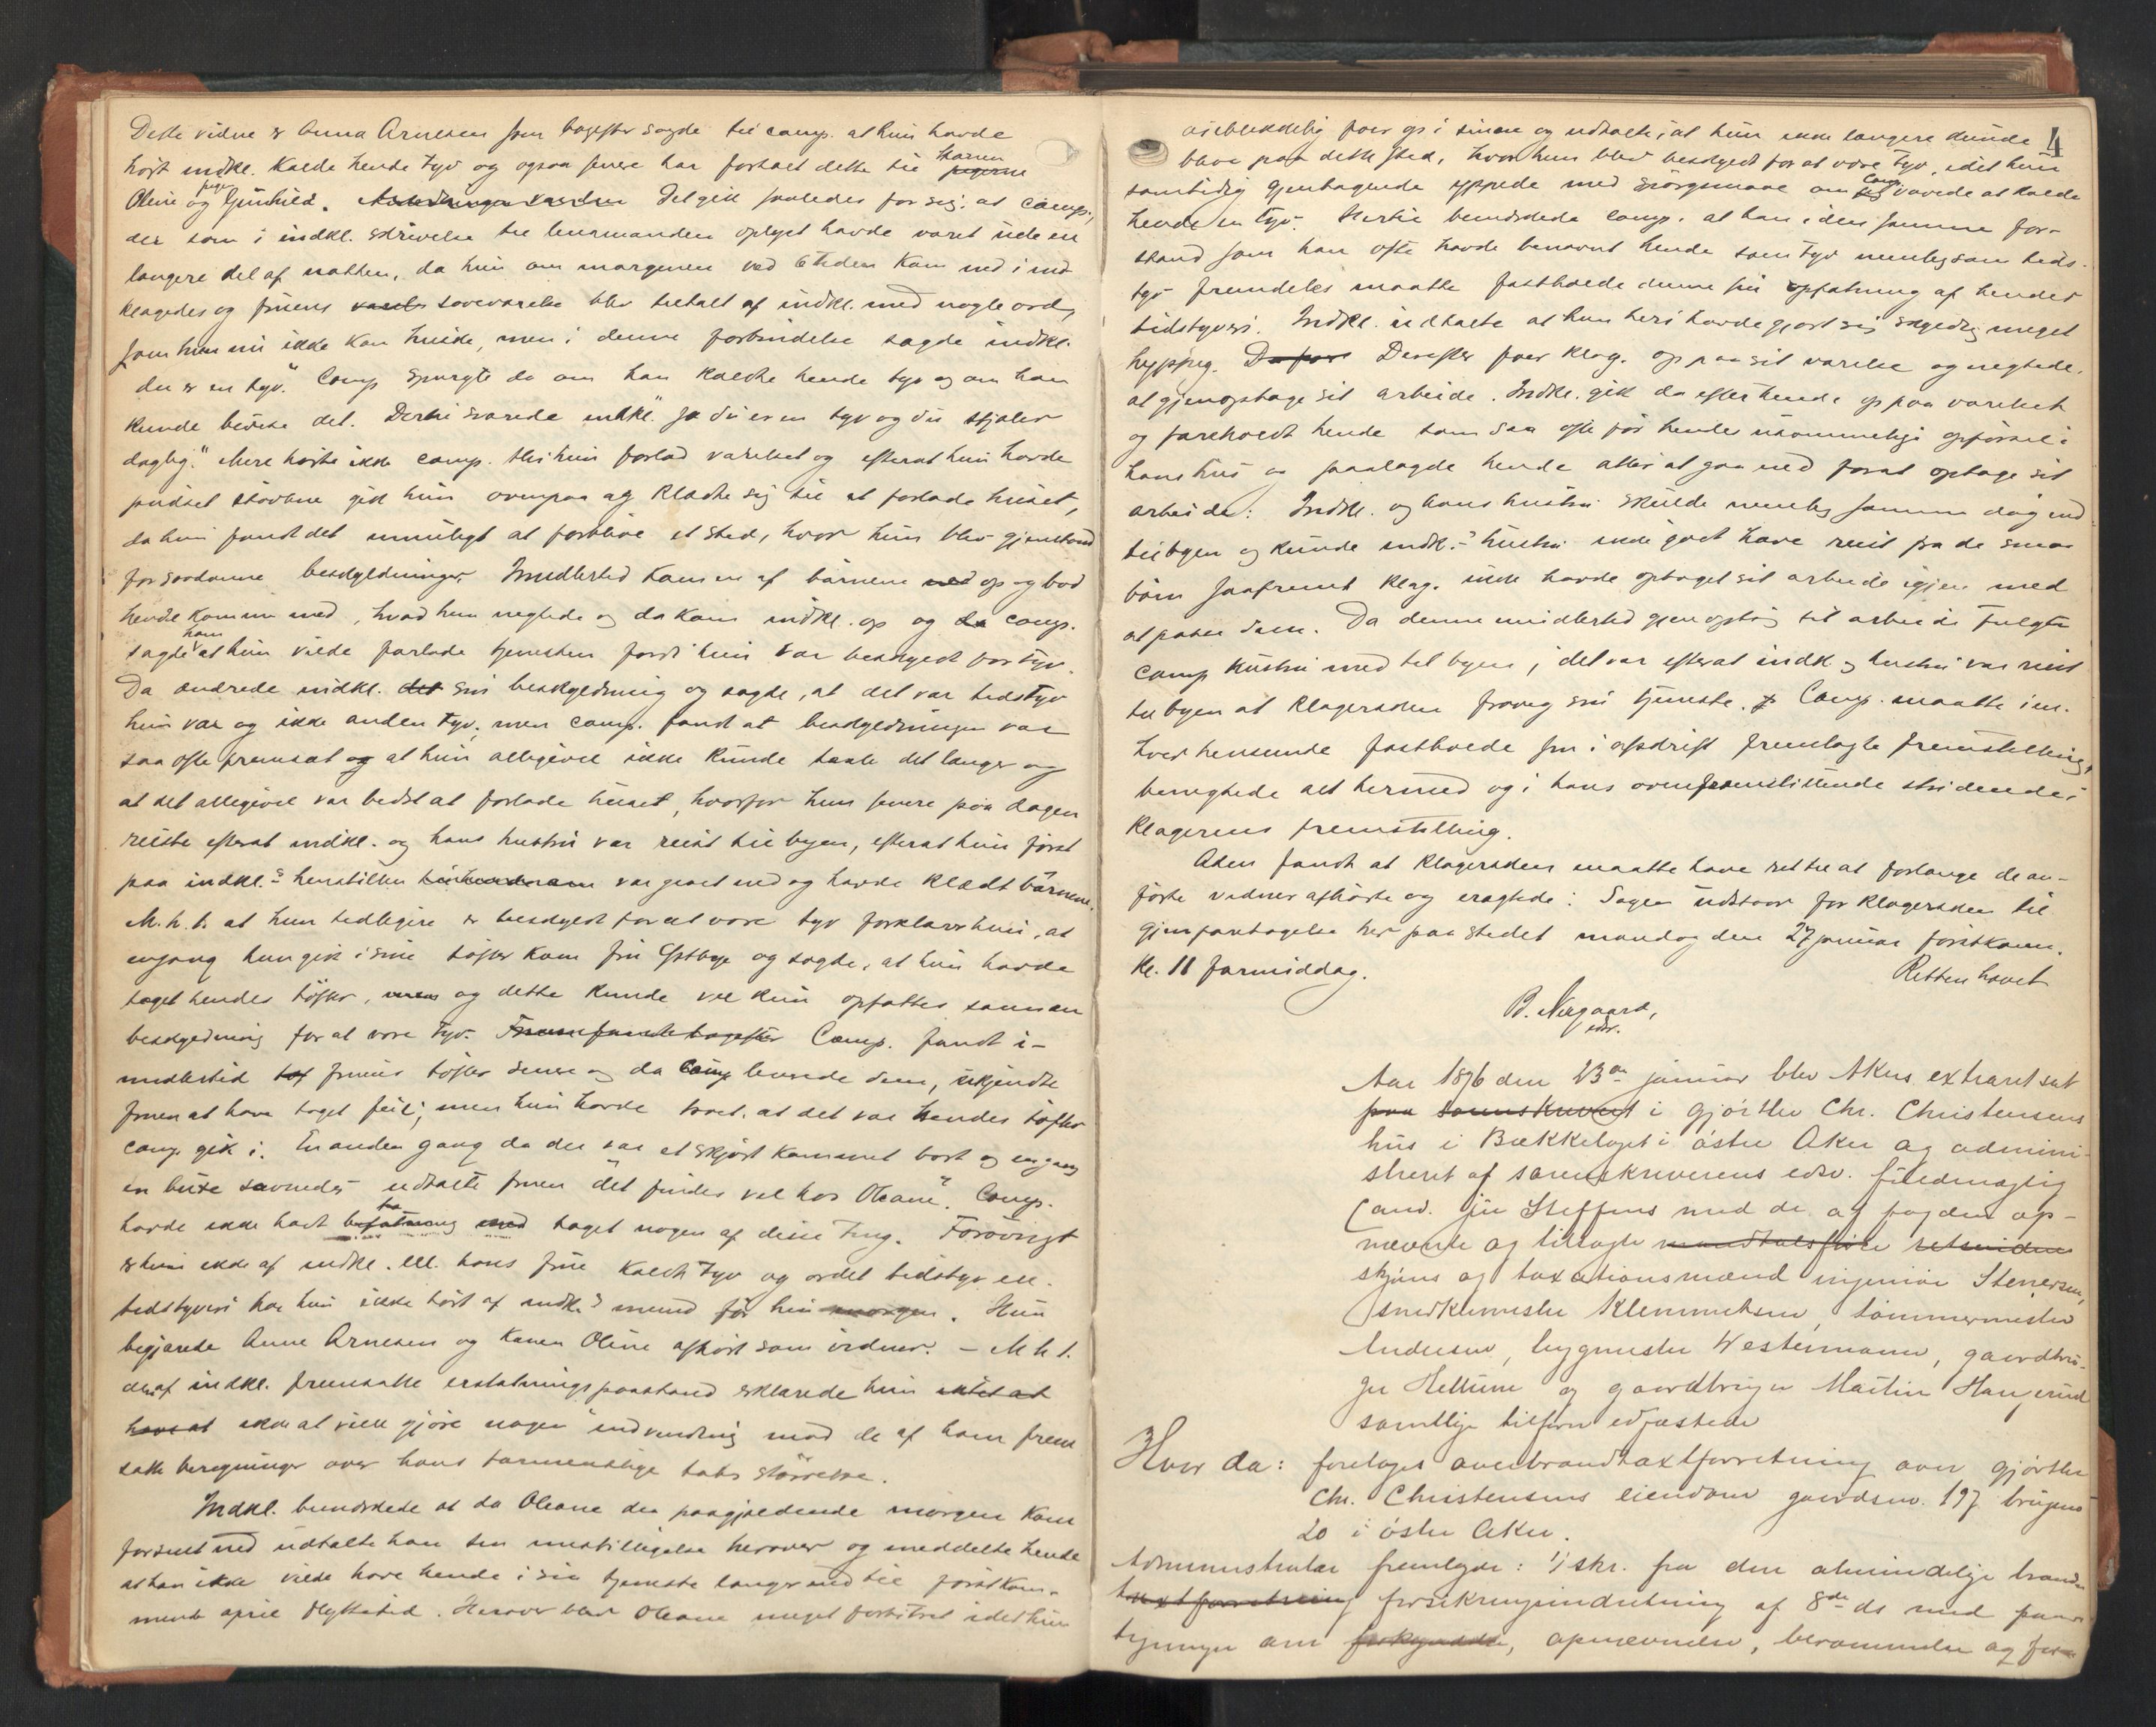 Dette vidne er Anna Arnesen som bagefter sagde til comp. at hun havde
hørt indkl. kalde hende tyv og ogsaa senere har fortalt dette til pigerne Karen
Oline og pigen Gunhild. Det gik saaledes for sig, at comp.,
der som i indkl. skrivelse til lensmanden oplyst havde været ude en
længere del af natten, da hun om morgenen ved 6 tiden kom ned i ind-
klagedes og fruens soveværelse blev tiltalt af indkl. med nogle ord,
som hun nu ikke kan huske, men i denne forbindelse sagde indkl.
"du er en tyv". Comp spurgte da om han kaldte hende tyv og om han
kunde bevise det. Dertil svarede indkl. "ja du er en tyv og du stjæler
daglig." Mere hørte ikke comp. thi hun forlod værelset og efterat hun havde
pudset støvlene gik hun ovenpaa og klædte sig til at forlade huset,
da hun fandt det umuligt at forblive et sted, hvor hun blev gjenstand
for saadanne beskyldninger. Imidlertid kom en af børnene ned op og bad
hende komme ned, hvad hun negtede og da kom indkl. op og da comp.
sagde ham at hun vilde forlade tjenesten fordi hun var beskyldt for tyv.
Da ændrede indkl. det sin beskyldning og sagde, at det var tidstyv
hun var og ikke anden tyv; men comp. fandt at beskyldningen var
saa ofte fremsat og at hun alligevel ikke kunde taale det længer og
at det alligevel var bedst at forlade huset, hvorfor hun senere paa dagen
reiste efterat indkl. og hans hustru var reist til byen, efterat hun først
paa indkl.s henstillen var gaaet ned og havde klædt børnene.
M. h. t. at hun tidligere er beskyldt for at være tyv forklarer hun, at
engang hun gik i sine tøfler kom fru Østbye og sagde, at hun havde
taget hendes tøfler, men og dette kunde vel kun opfattes som en
beskyldning for at være tyv. Comp. fandt i-
midlertid fruens tøfler senere og da comp leverede dem, erkjendte
fruen at have taget feil; men hun havde troet, at det var hendes tøfler
comp gik i. En anden gang da der var et skjørt kommet bort og engang
en buxe savnedes udtalte fruen "det findes vel hos Oleane". Comp.
havde ikke havt befatning med taget nogen af disse ting. Forøvrigt
er hun ikke af indkl. ell. hans frue kaldt tyv og ordet tidstyv ell.
tidstyveri har hun ikke hørt af indkl.s mund før hin morgen. Hun
begjærede Anne Arnesen og Karen Oline afhørt som vidner. - M. h. t.
den af indkl. fremsatte erstatningspaastand erklærede hun
ikke at ville gjøre nogen indvending mod de af ham frem
satte beregninger over hans formentlige tabs størrelse.
Indkl. bemærkede at da Oleane den paagjældende morgen kom
forsent ned udtalte han sin misbilligelse herover og meddelte hende
at han ikke vilde have hende i sin tjeneste længer end til førstkom-
mende april flyttetid. Herover blev Oleane meget forbitret idet hun
4
øieblikkelig foer op i sinne og udtalte, at hun ikke længere kunde
blive paa dette sted, hvor hun blev beskyldt for at være tyv, idet hun
samtidig gjentagende yppede med spørgsmaal om Comp. vovede at kalde
hende en tyv. Hertil bemærkede comp. at han i den samme for-
stand som han ofte havde benævnt hende som tyv nemlig som tids-
tyv fremdeles maatte fastholde denne sin opfatning af hendes
tidstyveri. Indkl. udtalte at hun heri havde gjort sig skyldig meget
hyppig. Derefter foer klag. op paa sit værelse og negtede
at gjenoptage sit arbeide. Indkl. gik da efter hende op paa værelset
og foreholdt hende som saa ofte før hendes usømmelige opførsel i
hans hus og paalagde hende atter at gaa ned forat optage sit
arbeide: Indkl. og hans hustru skulde nemlig samme dag ind
til byen og kunde indkl.s hustru ikke godt have reist fra de smaa
børn saafremt klag. ikke havde optaget sit arbeide igjen med
at passe dem. Da denne imidlertid gjenoptog sit arbeide fulgte
comp hustru med til byen; det var efterat indkl og hustru var reist
til byen at klagersken fraveg sin tjeneste. Comp. maatte i en-
hver henseende fastholde sin i afskrift fremlagte fremstilling,
benegtede alt hermed og i hans ovenfremstillende stridende i
klagerens fremstilling.
Adm fandt at klagersken maatte have ret til at forlange de an-
førte vidner afhørte og eragtede: Sagen udstaar for klagersken til
gjenforetagelse her paa stedet mandag den 27 januar førstkomm.
kl. 11 formiddag.
Retten hævet
B. Nægaard,
edsv.
Aar 1896 den 23de januar blev Akers extraret sat
paa sorenskriveri i gjørtler Chr. Christensens
hus i Bækkelaget i østre Aker og admini-
streret af sorenskriverens edsv. fuldmægtig
Cand. jur Steffens med de af fogden op-
nævnte og tilsagte
skjøns og taxationsmænd ingeniør Stenersen,
snedkermester Klemmetsen, tømmermester
Andersen, bygmester Westermann, gaardbru-
ger Hellum og gaardbruger Martin Haugerud
samtlige tilforn edfæstede
Hvor da: foretoges overbrandtaxtforretning over gjørtler
Chr. Christensens eiendom gaardsno. 197 brugsno
20 i østre Aker.
Administrator fremlagde: 1) skr. fra den almindelige brand-
taxtforretning forsikringsindretning af 8de ds med paa-
tegninger om forkyndelse, opnævnelse, berammelse og for-